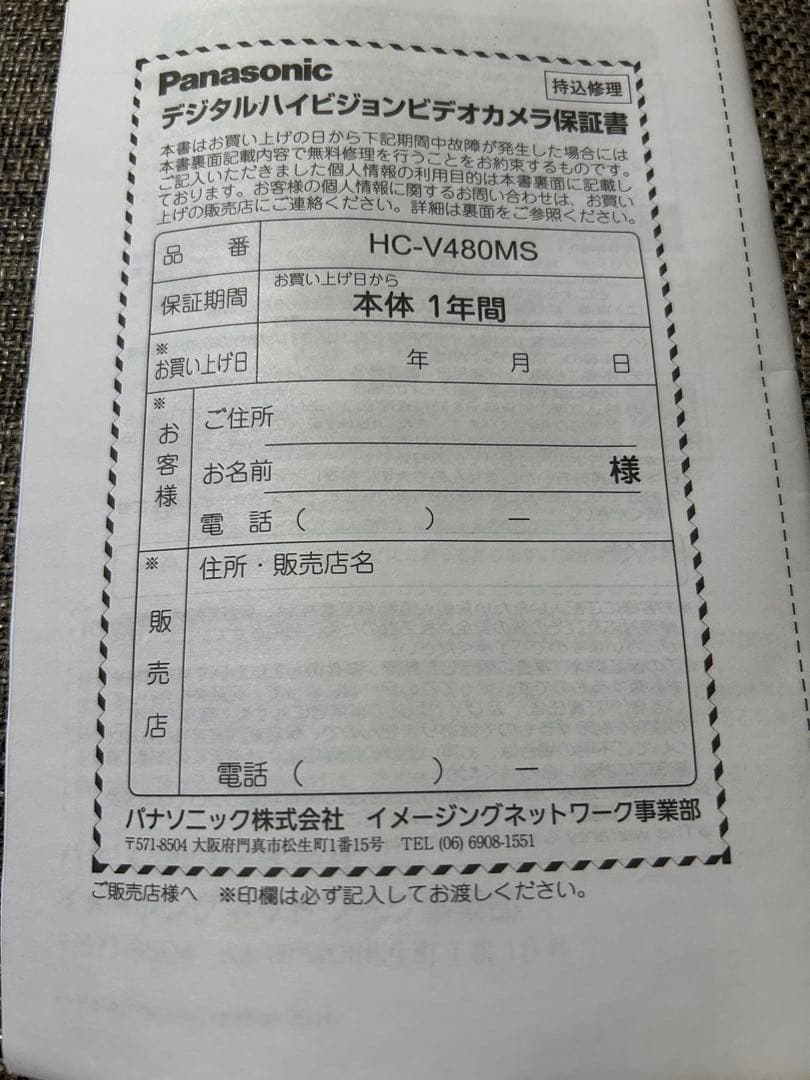 Panasonic
持込修理
デジタルハイビジョンビデオカメラ保証書
本書はお買い上げの日から下記期間中故障が発生した場合には
本書裏面記載内容で無料修理を行うことをお約束するものです。
ご記入いただきました個人情報の利用目的は本書裏面に記載し
ております。お客様の個人情報に関するお問い合わせは、お買い
上げの販売店にご連絡ください。詳細は裏面をご参照ください。
品 番 HC-V480MS
保証期間 お買い上げ日から
本体 1年間
※お買い上げ日 年 月 日
※お客様
ご住所
お名前 様
電 話 ( ) ー
※販売店
住所・販売店名
電話 ( ) ー
パナソニック株式会社 イメージングネットワーク事業部
〒571-8504 大阪府門真市松生町1番15号 TEL (06) 6908-1551
ご販売店様へ ※印欄は必ず記入してお渡しください。